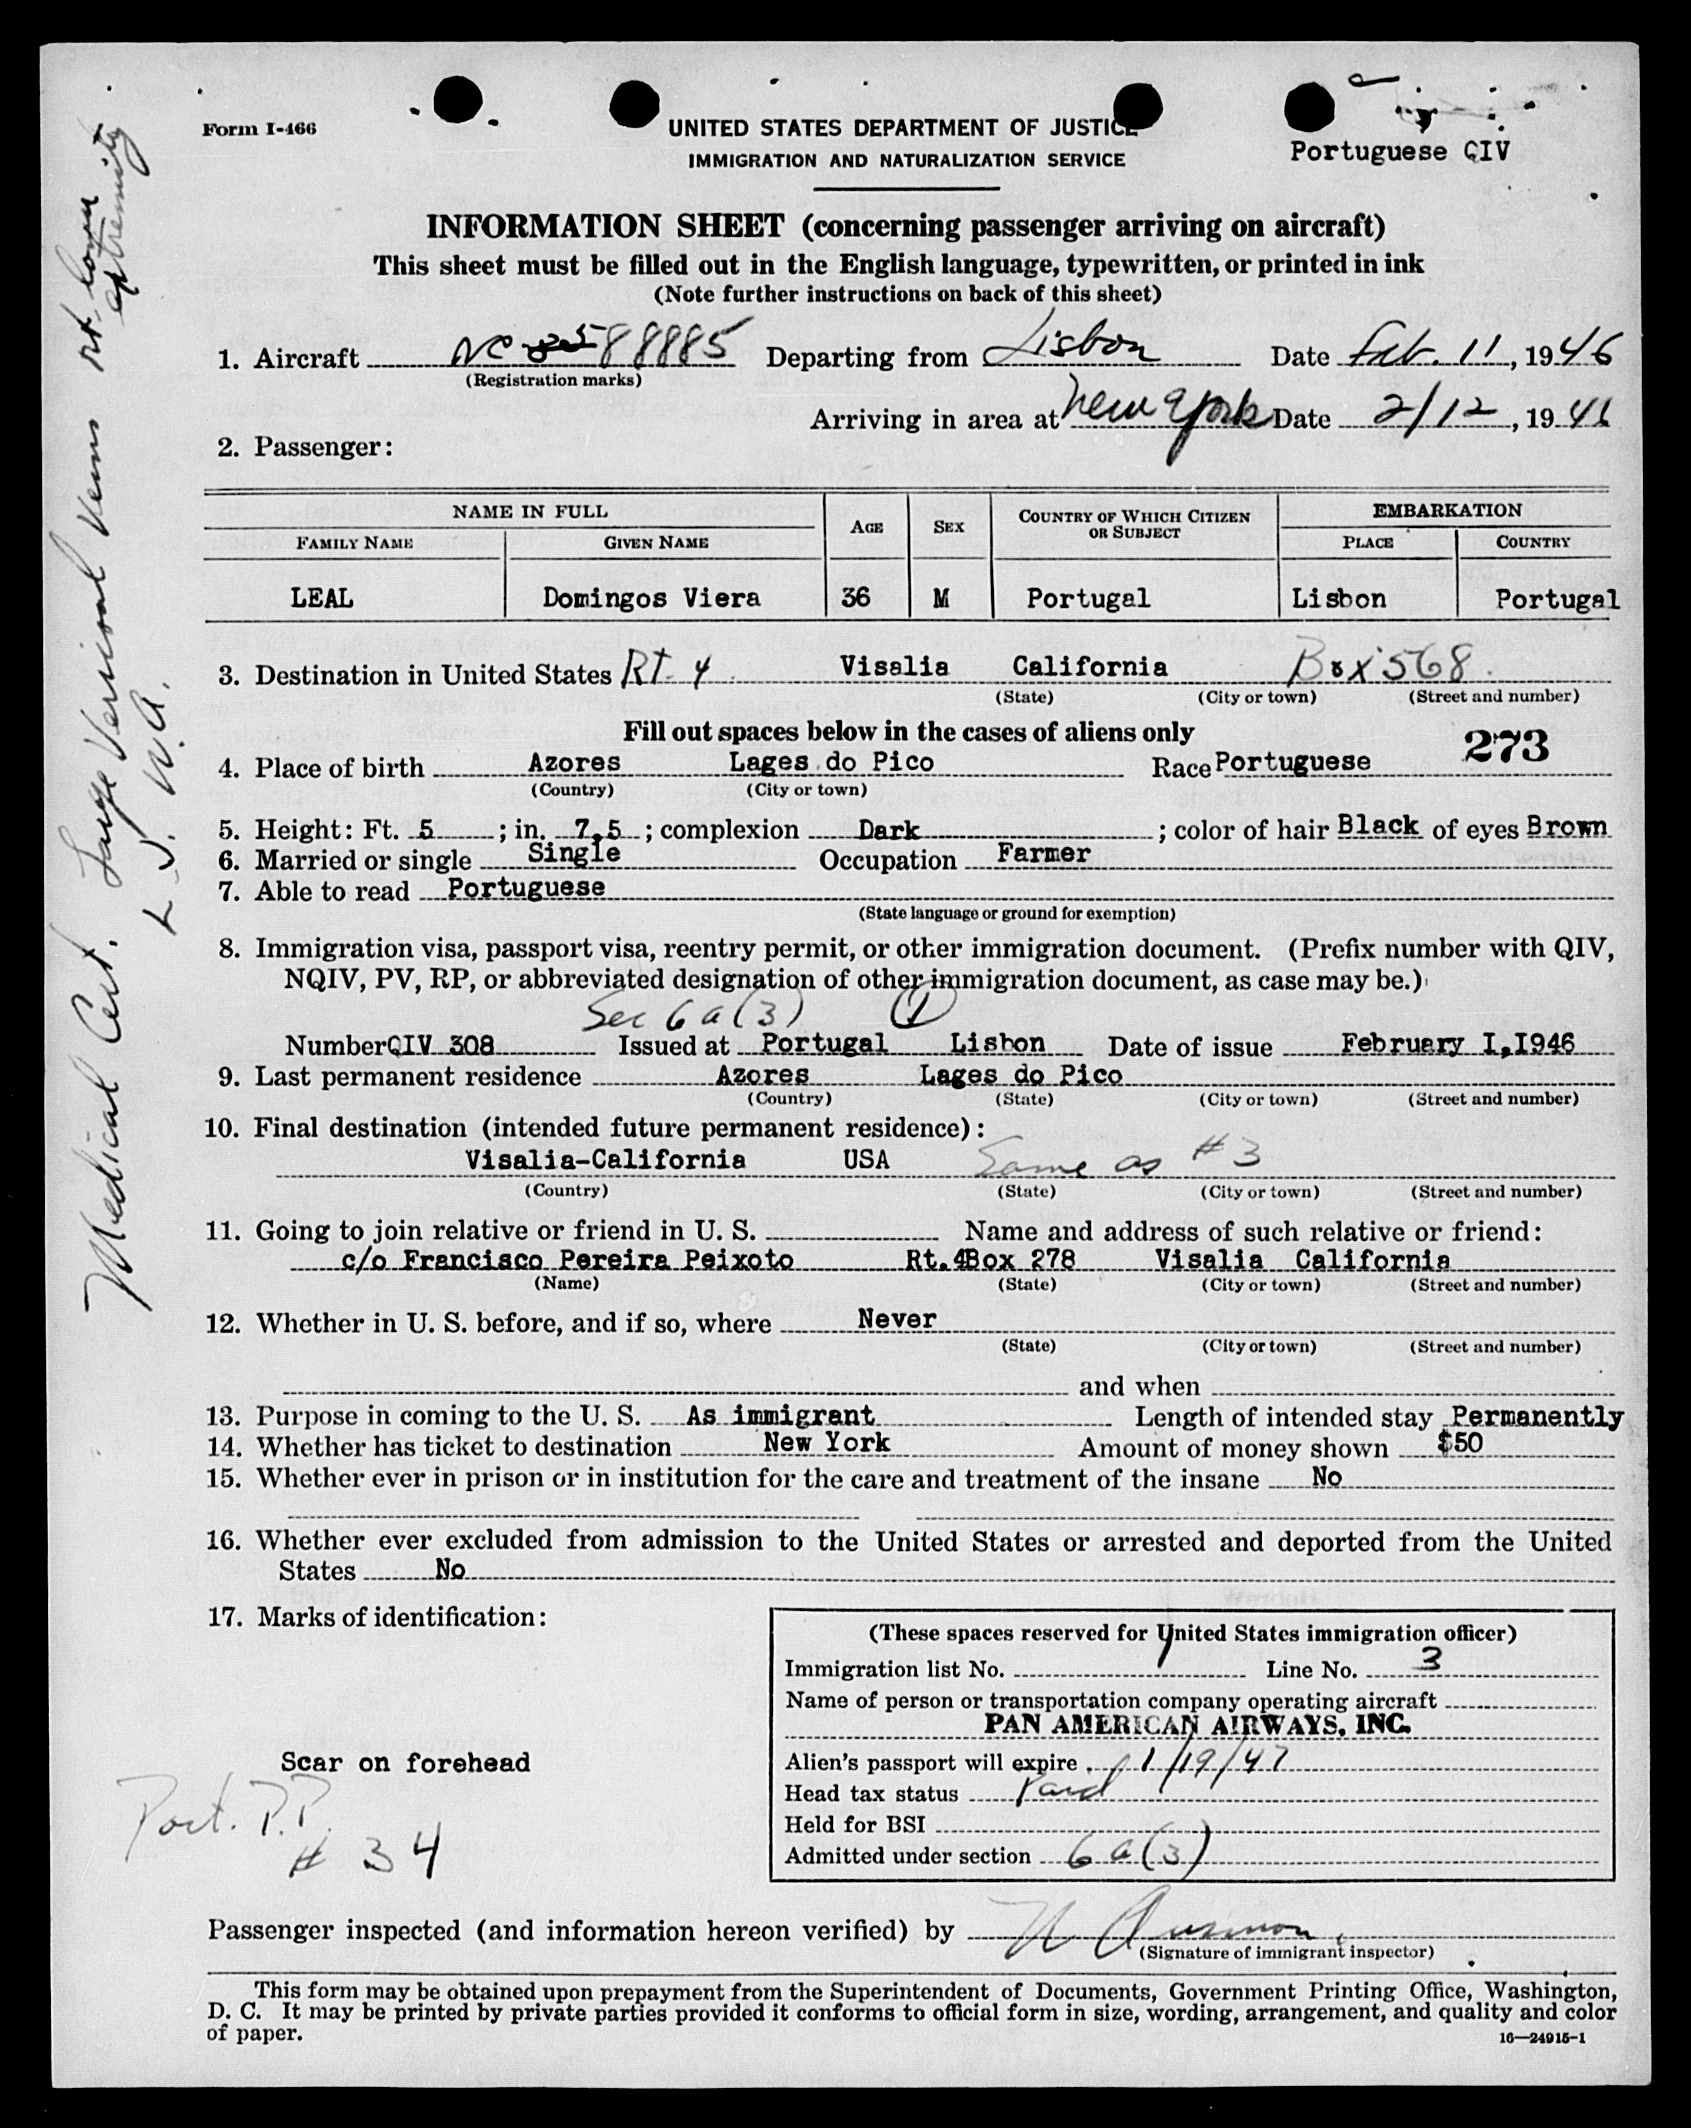 Form I-466
UNITED STATES DEPARTMENT OF JUSTICE
IMMIGRATION AND NATURALIZATION SERVICE
Portuguese QIV
INFORMATION SHEET (concerning passenger arriving on aircraft)
This sheet must be filled out in the English language, typewritten, or printed in ink
(Note further instructions on back of this sheet)
1. Aircraft NC 88885 Departing from Lisbon Date Feb. 11, 1946
(Registration marks)
Arriving in area at New York Date 2/12, 1946
2. Passenger:
NAME IN FULL AGE SEX COUNTRY OF WHICH CITIZEN OR SUBJECT EMBARKATION
FAMILY NAME GIVEN NAME PLACE COUNTRY
LEAL Domingos Viera 36 M Portugal Lisbon Portugal
3. Destination in United States RT. 4 Visalia California Box 568
(State) (City or town) (Street and number)
Fill out spaces below in the cases of aliens only
273
4. Place of birth Azores Lages do Pico Race Portuguese
(Country) (City or town)
5. Height: Ft. 5 ; in. 7,5 ; complexion Dark ; color of hair Black of eyes Brown
6. Married or single Single Occupation Farmer
7. Able to read Portuguese
(State language or ground for exemption)
8. Immigration visa, passport visa, reentry permit, or other immigration document. (Prefix number with QIV,
NQIV, PV, RP, or abbreviated designation of other immigration document, as case may be.)
Sec 6a(3) 1
Number QIV 308 Issued at Portugal Lisbon Date of issue February I,I946
9. Last permanent residence Azores Lages do Pico
(Country) (State) (City or town) (Street and number)
10. Final destination (intended future permanent residence):
Visalia-California USA Same as #3
(Country) (State) (City or town) (Street and number)
11. Going to join relative or friend in U. S. Name and address of such relative or friend:
c/o Francisco Pereira Peixoto Rt.4Box 278 Visalia California
(Name) (State) (City or town) (Street and number)
12. Whether in U. S. before, and if so, where Never
(State) (City or town) (Street and number)
and when
13. Purpose in coming to the U. S. As immigrant Length of intended stay Permanently
14. Whether has ticket to destination New York Amount of money shown $50
15. Whether ever in prison or in institution for the care and treatment of the insane No
16. Whether ever excluded from admission to the United States or arrested and deported from the United
States No
17. Marks of identification:
Scar on forehead
Port. P.P.
# 34
(These spaces reserved for United States immigration officer)
Immigration list No. 1 Line No. 3
Name of person or transportation company operating aircraft
PAN AMERICAN AIRWAYS, INC.
Alien's passport will expire 1/19/47
Head tax status Paid
Held for BSI
Admitted under section 6a(3)
Passenger inspected (and information hereon verified) by
(Signature of immigrant inspector)
This form may be obtained upon prepayment from the Superintendent of Documents, Government Printing Office, Washington,
D. C. It may be printed by private parties provided it conforms to official form in size, wording, arrangement, and quality and color
of paper.
16—24915-1
Medical Cert. Large Vericosal Veins rt. lower
extremity